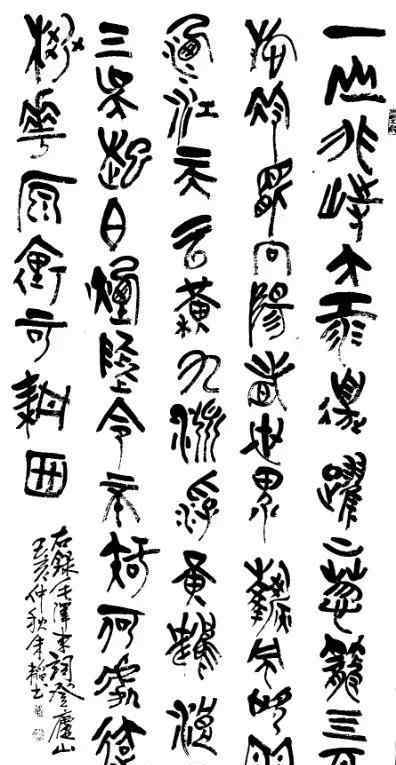 一山飛峙大江邊躍上葱籠四百
旋冷眼向陽看世界熱風吹雨
灑江天雲橫九派浮黃鶴浪
三吴起白煙陶令不知何處
桃花可耕田
右錄毛澤東詞登廬山
亥仲秋書